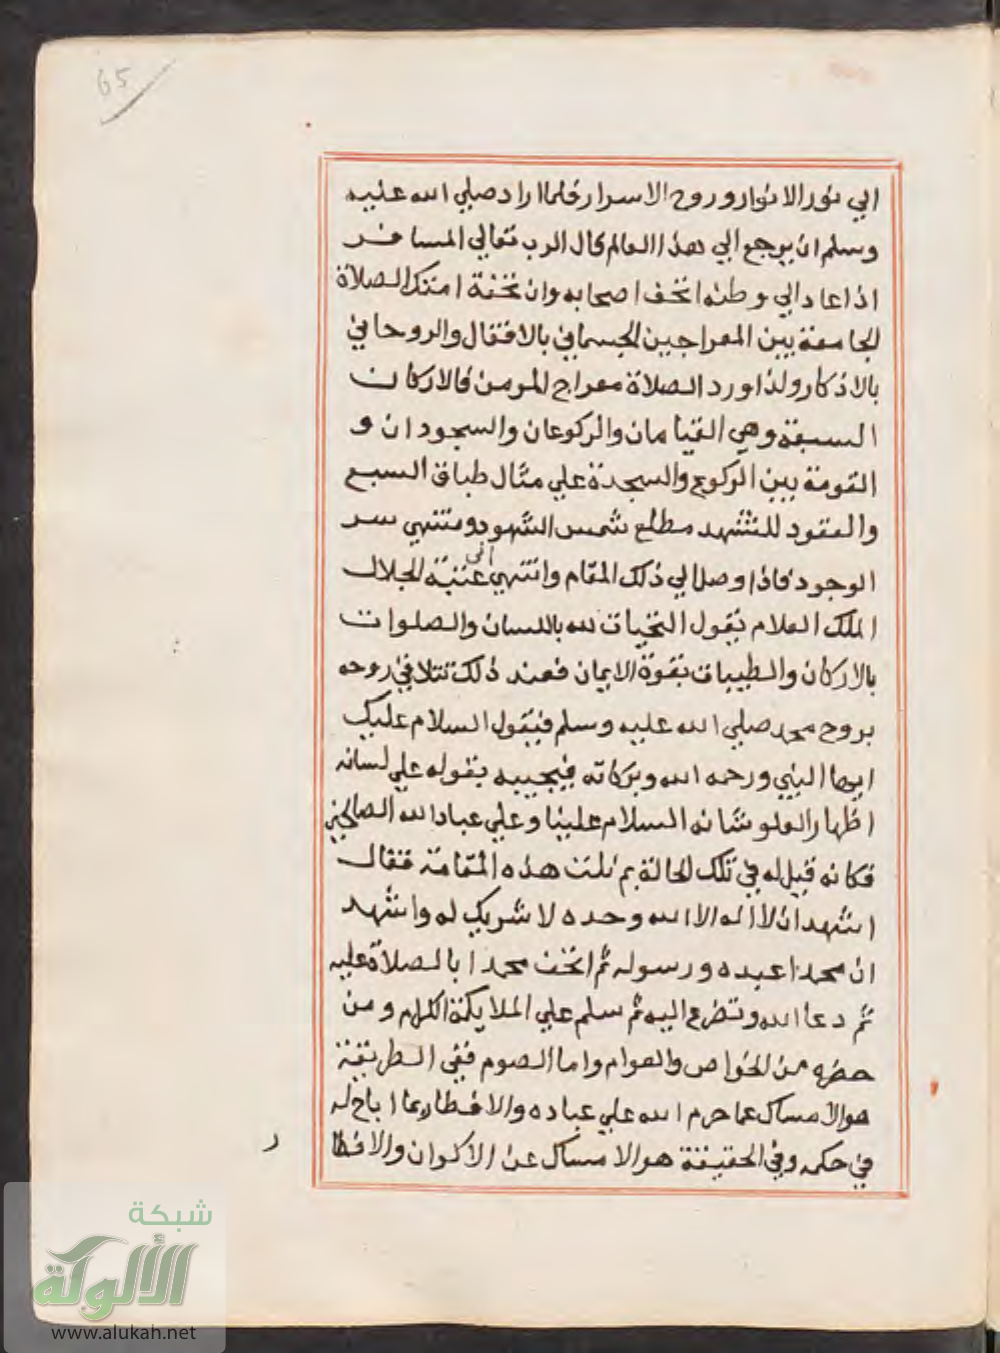 65
الي نور الانوار وروح الاسرار فلما اراد صلي الله عليه
وسلم ان يرجع الي هذا العالم قال الرب تعالي المسافر
اذا عاد الي وطنه اتحف اصحابه وان تحفة امتك الصلاة
الجامعة بين المعراجين الجسماني بالافعال والروحاني
بالاذكار ولذا ورد الصلاة معراج المومن فالاركان
السبعة وهي القيامان والركوعان والسجودان و
القومة بين الركوع والسجدة علي مثال طباق السبع
والقعود للتشهد مطلع شمس الشهود ومنتهي سر
الوجود فاذا وصل الي ذلك المقام وانتهي الي عتبة الجلال
الملك العلام يقول التحيات لله باللسان والصلوات
بالاركان والطيبات بقوة الايمان فعند ذلك تتلاقي روحه
بروح محمد صلي الله عليه وسلم فيقول السلام عليك
ايها النبي ورحمه الله وبركاته فيجيبه بقوله علي لسانه
اظهارا لعلو شانه السلام علينا وعلي عباد الله الصالحين
فكانه قيل له في تلك الحالة بم نلت هذه المقامة فقال
اشهد ان لا اله الا الله وحده لا شريك له واشهد
ان محمدا عبده ورسوله ثم اتحف محمدا بالصلاة عليه
ثم دعا الله وتضرع اليه ثم سلم علي الملايكة الكرام ومن
حضره من الخواص والعوام واما الصوم ففي الطريقة
هو الامساك عما حرم الله علي عباده والافطار بما اباح له
في حكمه وفي الحقيقة هو الامساك عن الاكوان والافطا
ر
شبكة
الألوكة
www.alukah.net